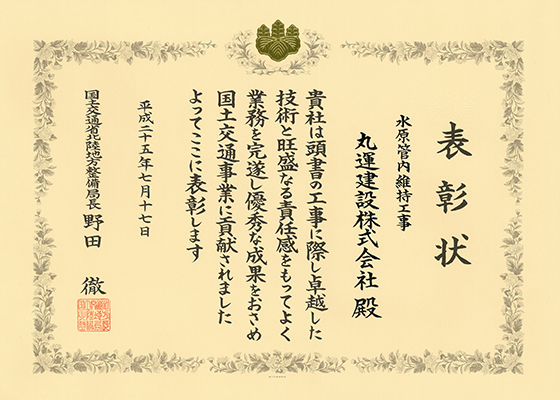 表彰状
水原管内維持工事
丸運建設株式会社 殿
貴社は頭書の工事に際し卓越した
技術と旺盛なる責任感をもってよく
業務を完遂し優秀な成果をおさめ
国土交通事業に貢献されました
よってここに表彰します
平成二十五年七月十七日
国土交通省北陸地方整備局長 野田 徹